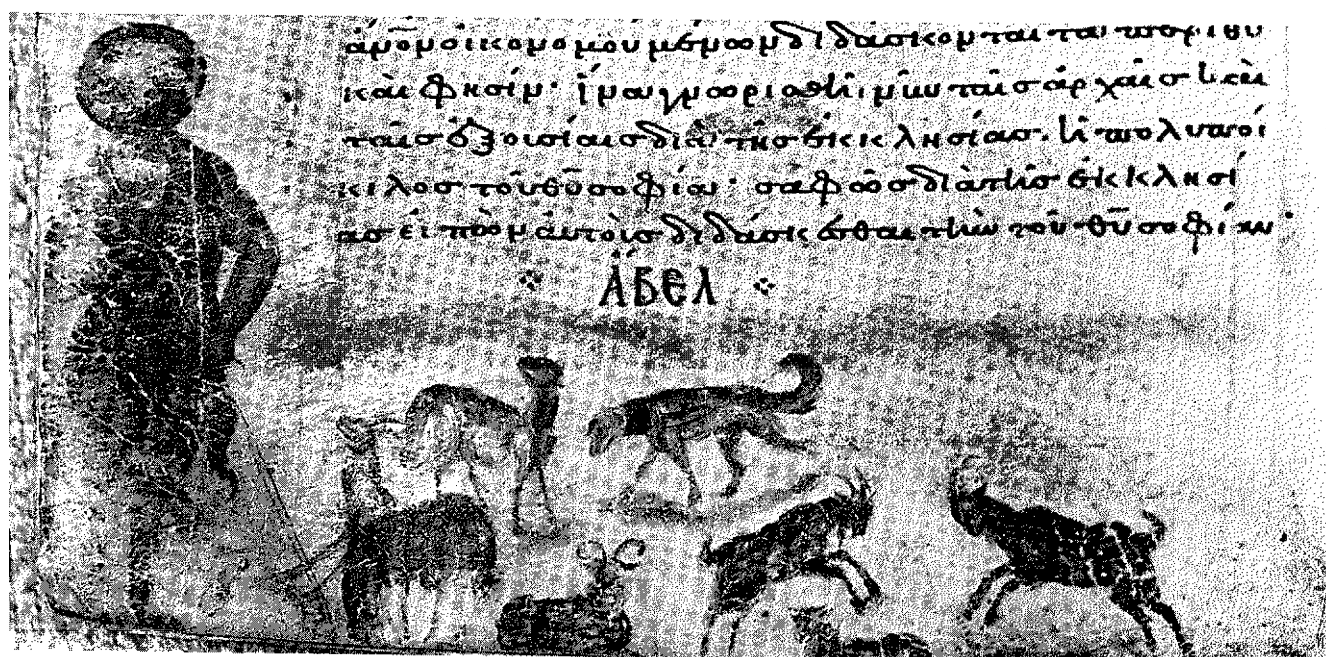 ἄνο̄ν οἰκονομουμένων διδάσκονται τὰ περὶ θυ
καὶ φησίν· ἵνα γνωρισθῆ νῦν ταῖς ἀρχαῖς καὶ
ταῖς ἐξουσίαις διὰ τῆς ἐκκλησίας. ἡ πολυποί
κιλος τοῦ θῡ σοφία· σαφῶς διὰ τῆς ἐκκλησί
ας εἰπὼν αὐτοῖς διδάσκεσθαι τὴν τοῦ θῡ σοφίαν·
ἌΒΕΛ